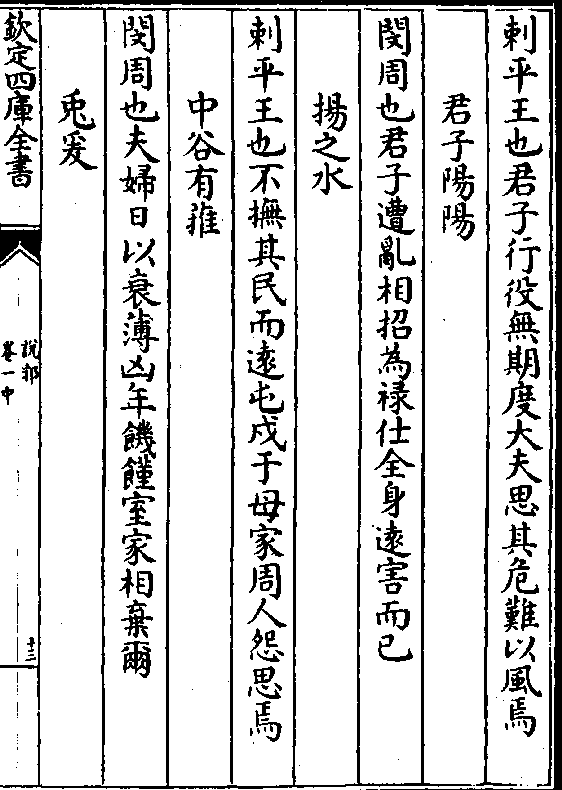 刺平王也君子行役無期度大夫思其危難以風焉
君子陽陽
閔周也君子遭亂相招為禄仕全身逺害而已
揚之水
刺平王也不撫其民而逺屯戍于母家周人怨思焉
中谷有蓷
閔周也夫婦日以衰薄凶年饑饉室家相棄爾
兎爰
欽定四庫全書
說郛
卷一中
十三